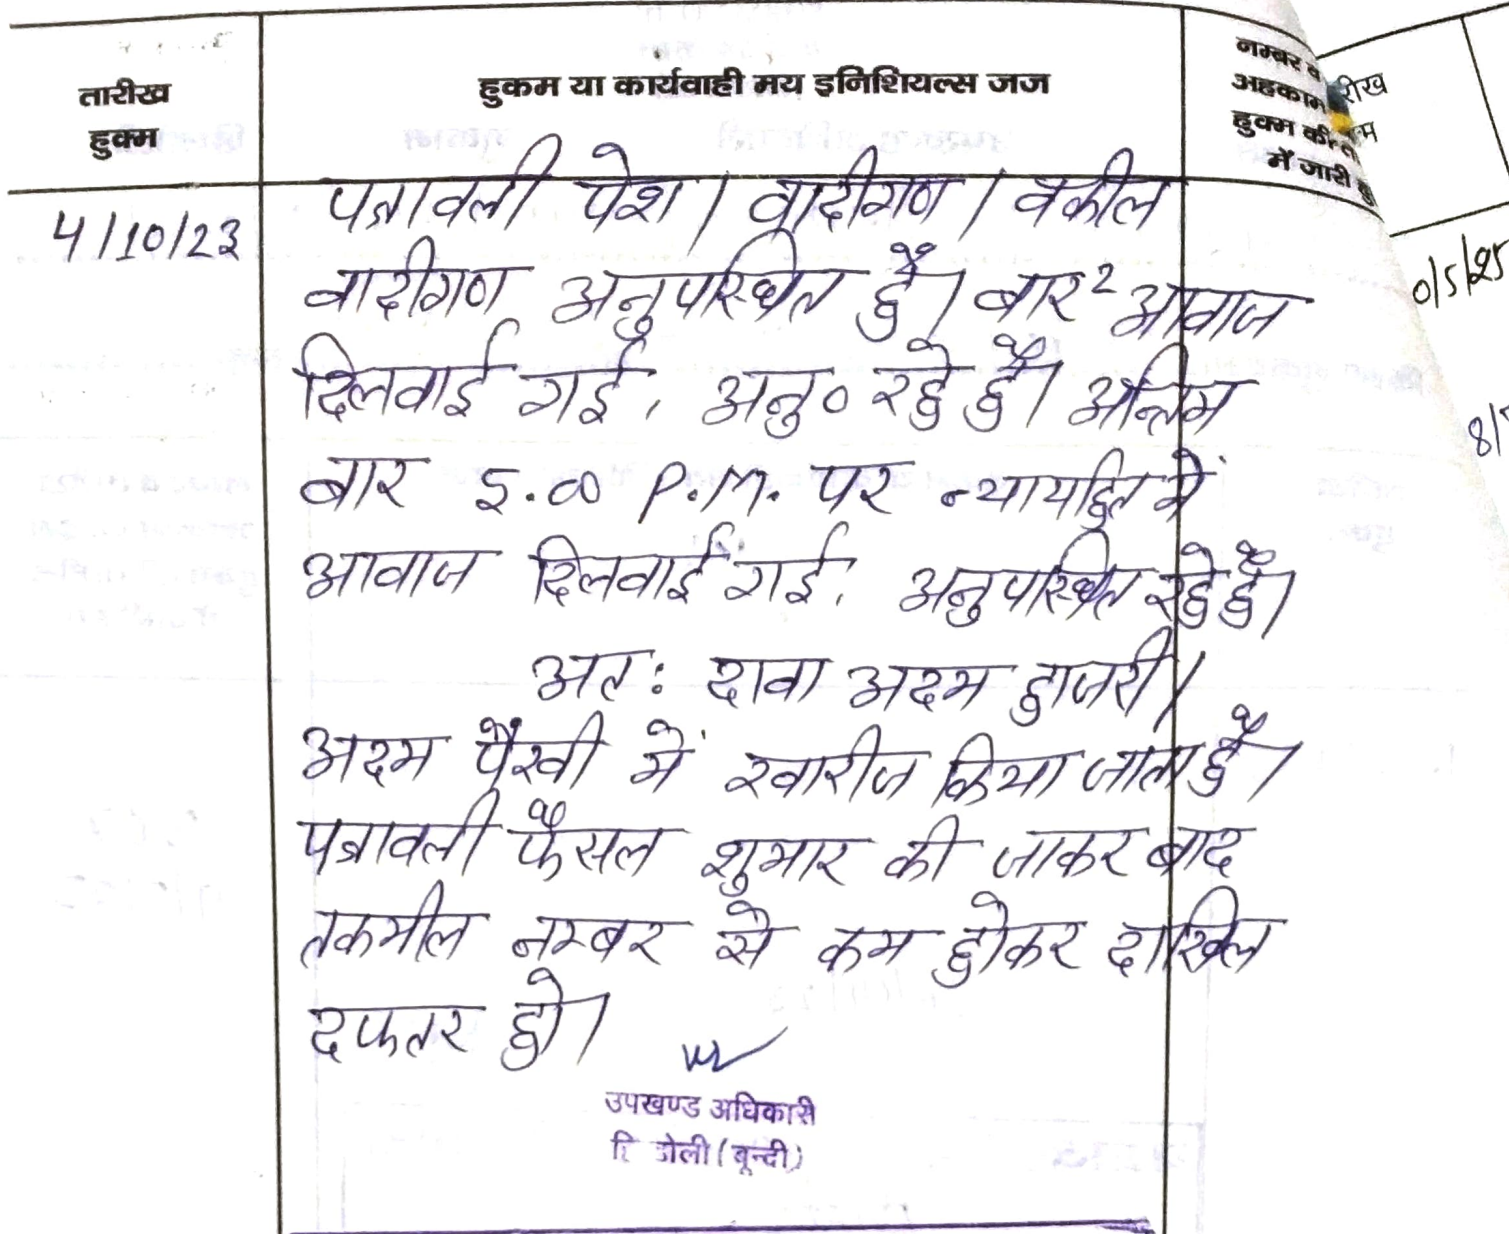 तारीख
हुक्म
हुकम या कार्यवाही मय इनिशियल्स जज
नम्बर व
अहकाम
हुक्म की त
में जारी हु
रीख
म
4/10/23
पत्रावली पेश। वादीगण / वकील
वादीगण अनुपस्थित हैं। बार² आवाज
दिलवाई गई, अनु० रहे हैं। अन्तिम
बार 5.00 P.M. पर न्यायहित में
आवाज दिलवाई गई, अनुपस्थित रहे हैं।
अतः दावा अदम हाजरी/
अदम पैरवी में खारीज किया जाता है।
पत्रावली फैसल शुमार की जाकर बाद
तकमील नम्बर से कम होकर दाखिल
दफतर हो।
उपखण्ड अधिकारी
डोली (बून्दी)
0/5/25
8/